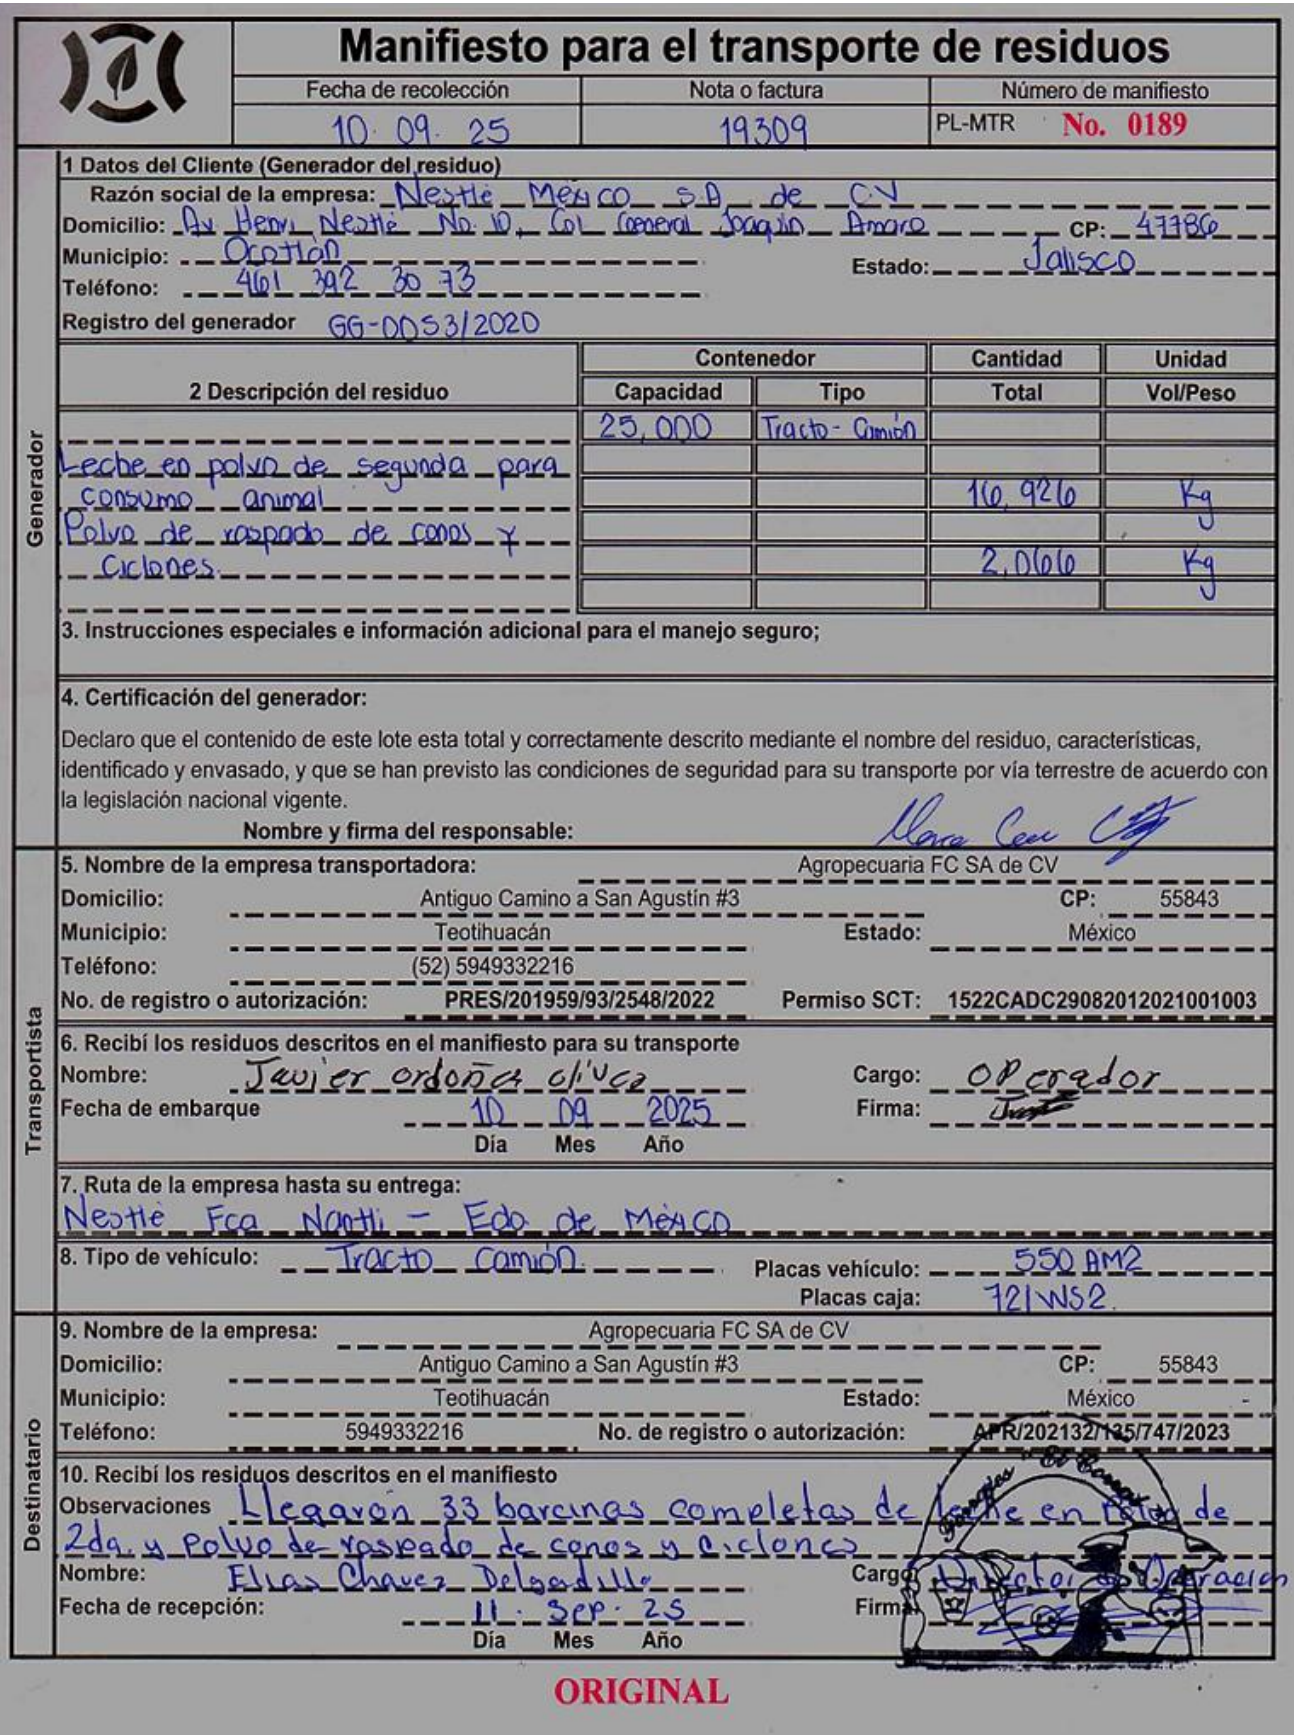 Manifiesto para el transporte de residuos
Fecha de recolección Nota o factura Número de manifiesto
10. 09. 25 19309 PL-MTR No. 0189
1 Datos del Cliente (Generador del residuo)
Razón social de la empresa: Nestlé México S.A de C.V
Domicilio: Av Henri Nestlé No. 10, Col General Joaquín Amaro CP: 47786
Municipio: Ocotlán Estado: Jalisco
Teléfono: 461 392 30 73
Registro del generador GG-0053/2020
Contenedor Cantidad Unidad
2 Descripción del residuo Capacidad Tipo Total Vol/Peso
25,000 Tracto-Camión
Leche en polvo de segunda para
consumo animal 16,926 Kg
Polvo de raspado de conos y
Ciclones. 2,066 Kg
Generador
3. Instrucciones especiales e información adicional para el manejo seguro;
4. Certificación del generador:
Declaro que el contenido de este lote esta total y correctamente descrito mediante el nombre del residuo, características,
identificado y envasado, y que se han previsto las condiciones de seguridad para su transporte por vía terrestre de acuerdo con
la legislación nacional vigente.
Nombre y firma del responsable:
5. Nombre de la empresa transportadora: Agropecuaria FC SA de CV
Domicilio: Antiguo Camino a San Agustín #3 CP: 55843
Municipio: Teotihuacán Estado: México
Teléfono: (52) 5949332216
No. de registro o autorización: PRES/201959/93/2548/2022 Permiso SCT: 1522CADC29082012021001003
Transportista
6. Recibí los residuos descritos en el manifiesto para su transporte
Nombre: Javier ordoñez Cargo: Operador
Fecha de embarque 10 09 2025 Firma:
Día Mes Año
7. Ruta de la empresa hasta su entrega:
Nestlé Fca Nantli - Edo de México
8. Tipo de vehículo: Tracto Camión. Placas vehículo: 550 AM2
Placas caja: 721WS2.
9. Nombre de la empresa: Agropecuaria FC SA de CV
Domicilio: Antiguo Camino a San Agustín #3 CP: 55843
Municipio: Teotihuacán Estado: México
Teléfono: 5949332216 No. de registro o autorización: APR/202132/135/747/2023
Destinatario
10. Recibí los residuos descritos en el manifiesto
Observaciones Llegaron 33 barcinas completas de leche en Polvo de
2da. y Polvo de raspado de conos y ciclones
Nombre: Elias Chavez Delgadillo Cargo Director de Operación
Fecha de recepción: 11. Sep. 25 Firma
Día Mes Año
ORIGINAL